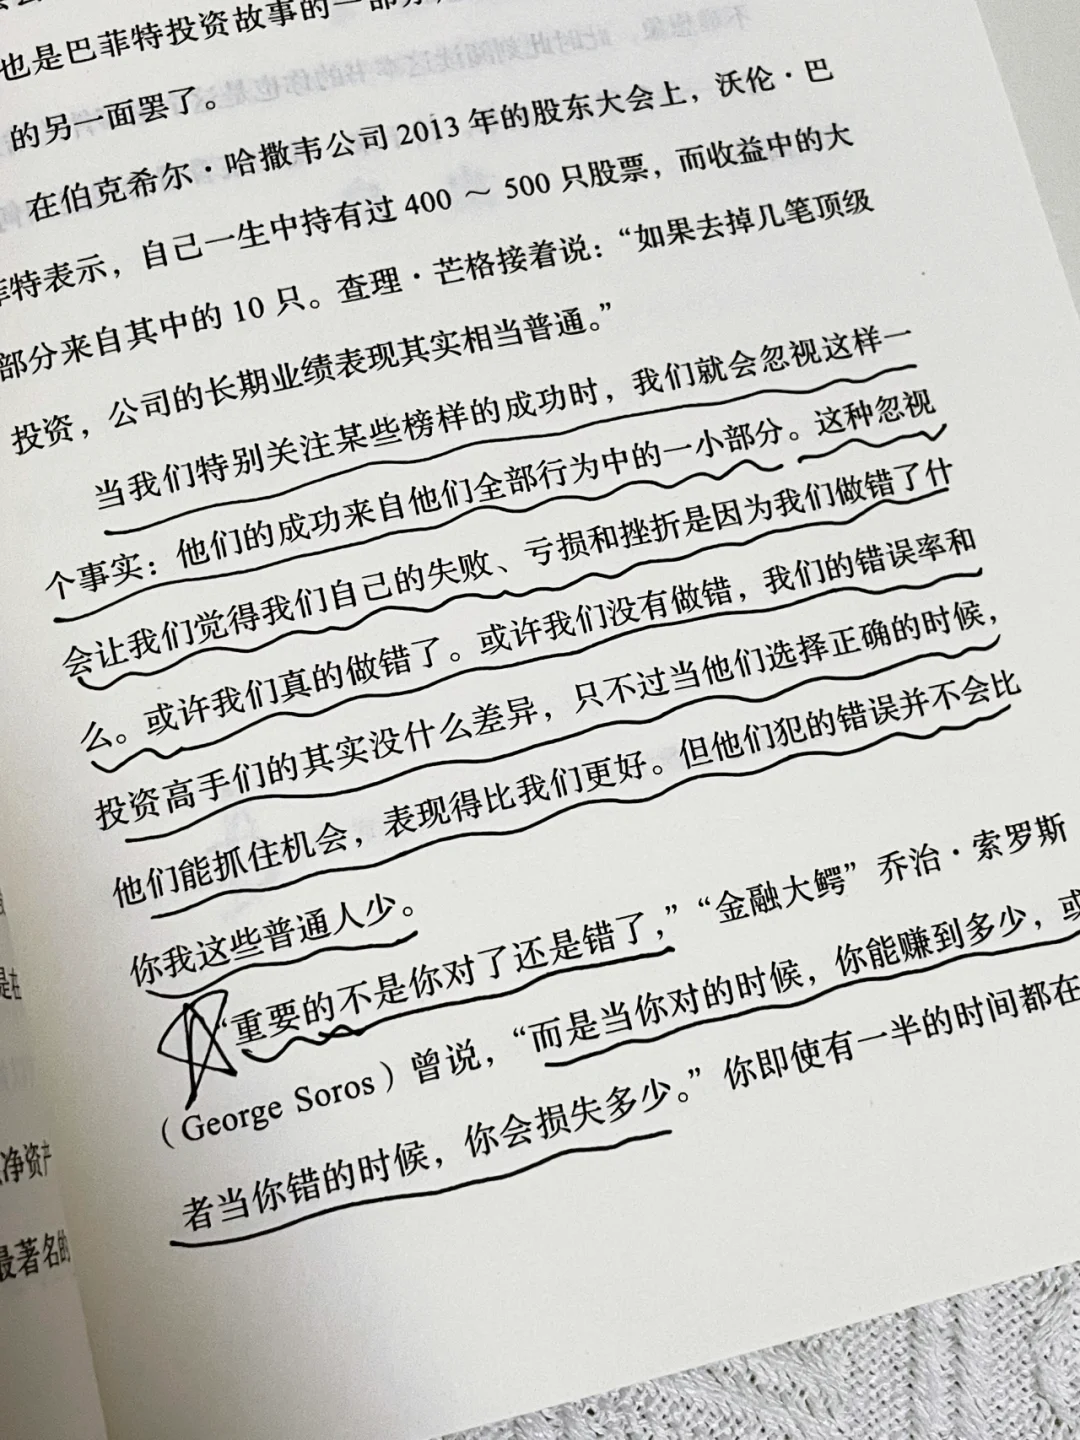 也是巴菲特投资故事的一部分，
的另一面罢了。
在伯克希尔·哈撒韦公司 2013 年的股东大会上，沃伦·巴
菲特表示，自己一生中持有过 400 ～ 500 只股票，而收益中的大
部分来自其中的 10 只。查理·芒格接着说：“如果去掉几笔顶级
投资，公司的长期业绩表现其实相当普通。”
当我们特别关注某些榜样的成功时，我们就会忽视这样一
个事实：他们的成功来自他们全部行为中的一小部分。这种忽视
会让我们觉得我们自己的失败、亏损和挫折是因为我们做错了什
么。或许我们真的做错了。或许我们没有做错，我们的错误率和
投资高手们的其实没什么差异，只不过当他们选择正确的时候，
他们能抓住机会，表现得比我们更好。但他们犯的错误并不会比
你我这些普通人少。
“重要的不是你对了还是错了，”“金融大鳄”乔治·索罗斯
（George Soros）曾说，“而是当你对的时候，你能赚到多少，或
者当你错的时候，你会损失多少。”你即使有一半的时间都在
净资产
最著名的